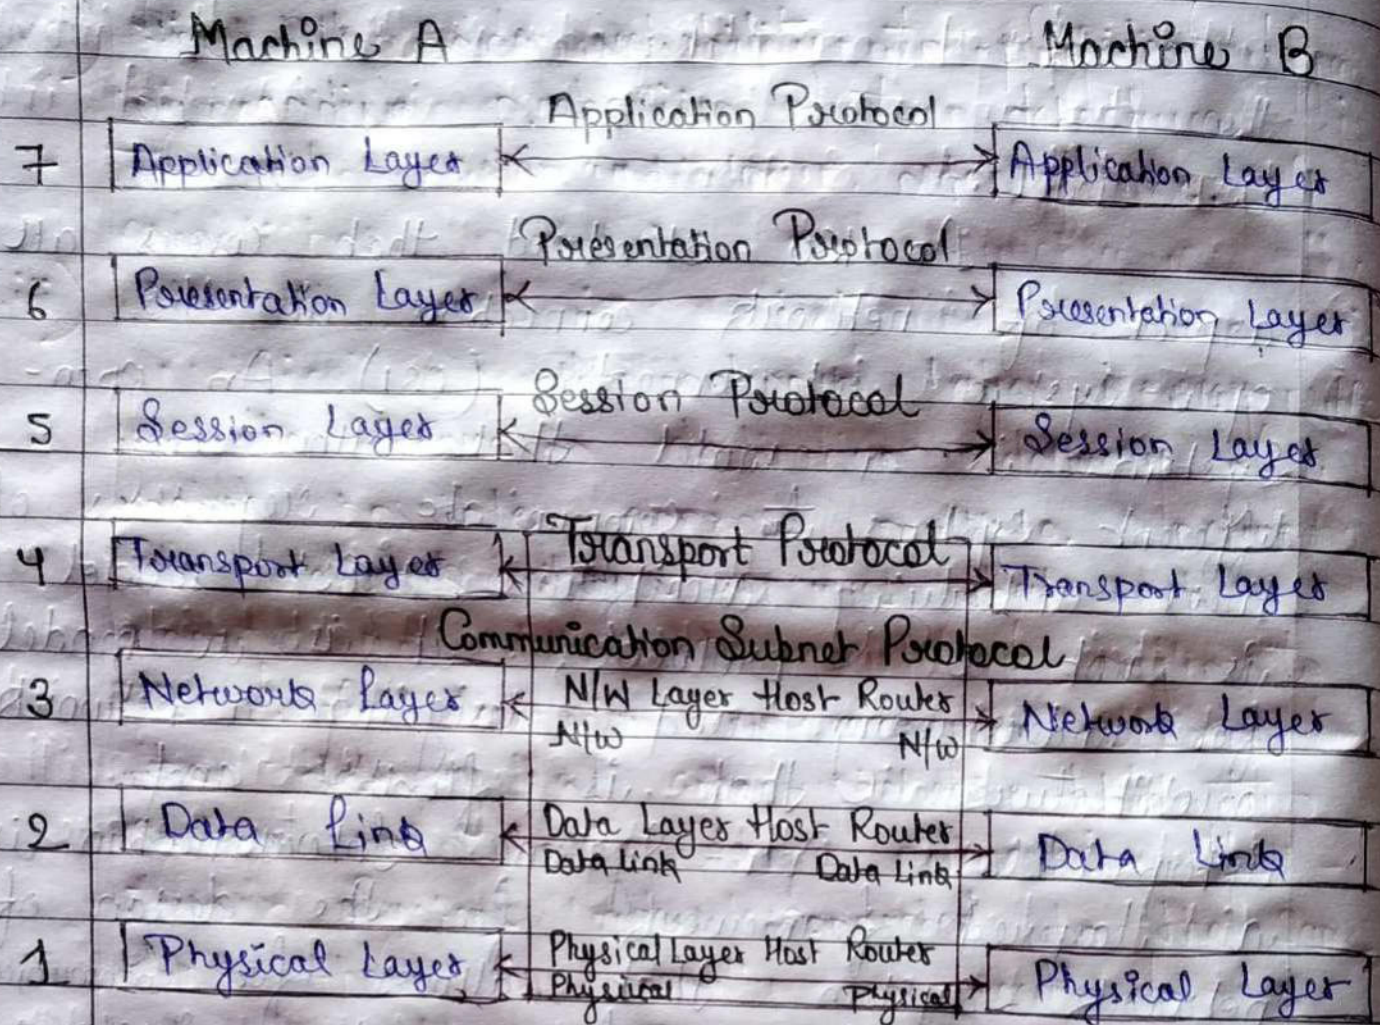 Machine A Machine B
Application Protocol
7 Application Layer Application Layer
Presentation Protocol
6 Presentation Layer Presentation Layer
Session Protocol
5 Session Layer Session Layer
Transport Protocol
4 Transport Layer Transport Layer
Communication Subnet Protocol
3 Network Layer N/W Layer Host Router Network Layer
N/W N/W
2 Data Link Data Layer Host Router Data Link
Data Link Data Link
1 Physical Layer Physical Layer Host Router Physical Layer
Physical Physical